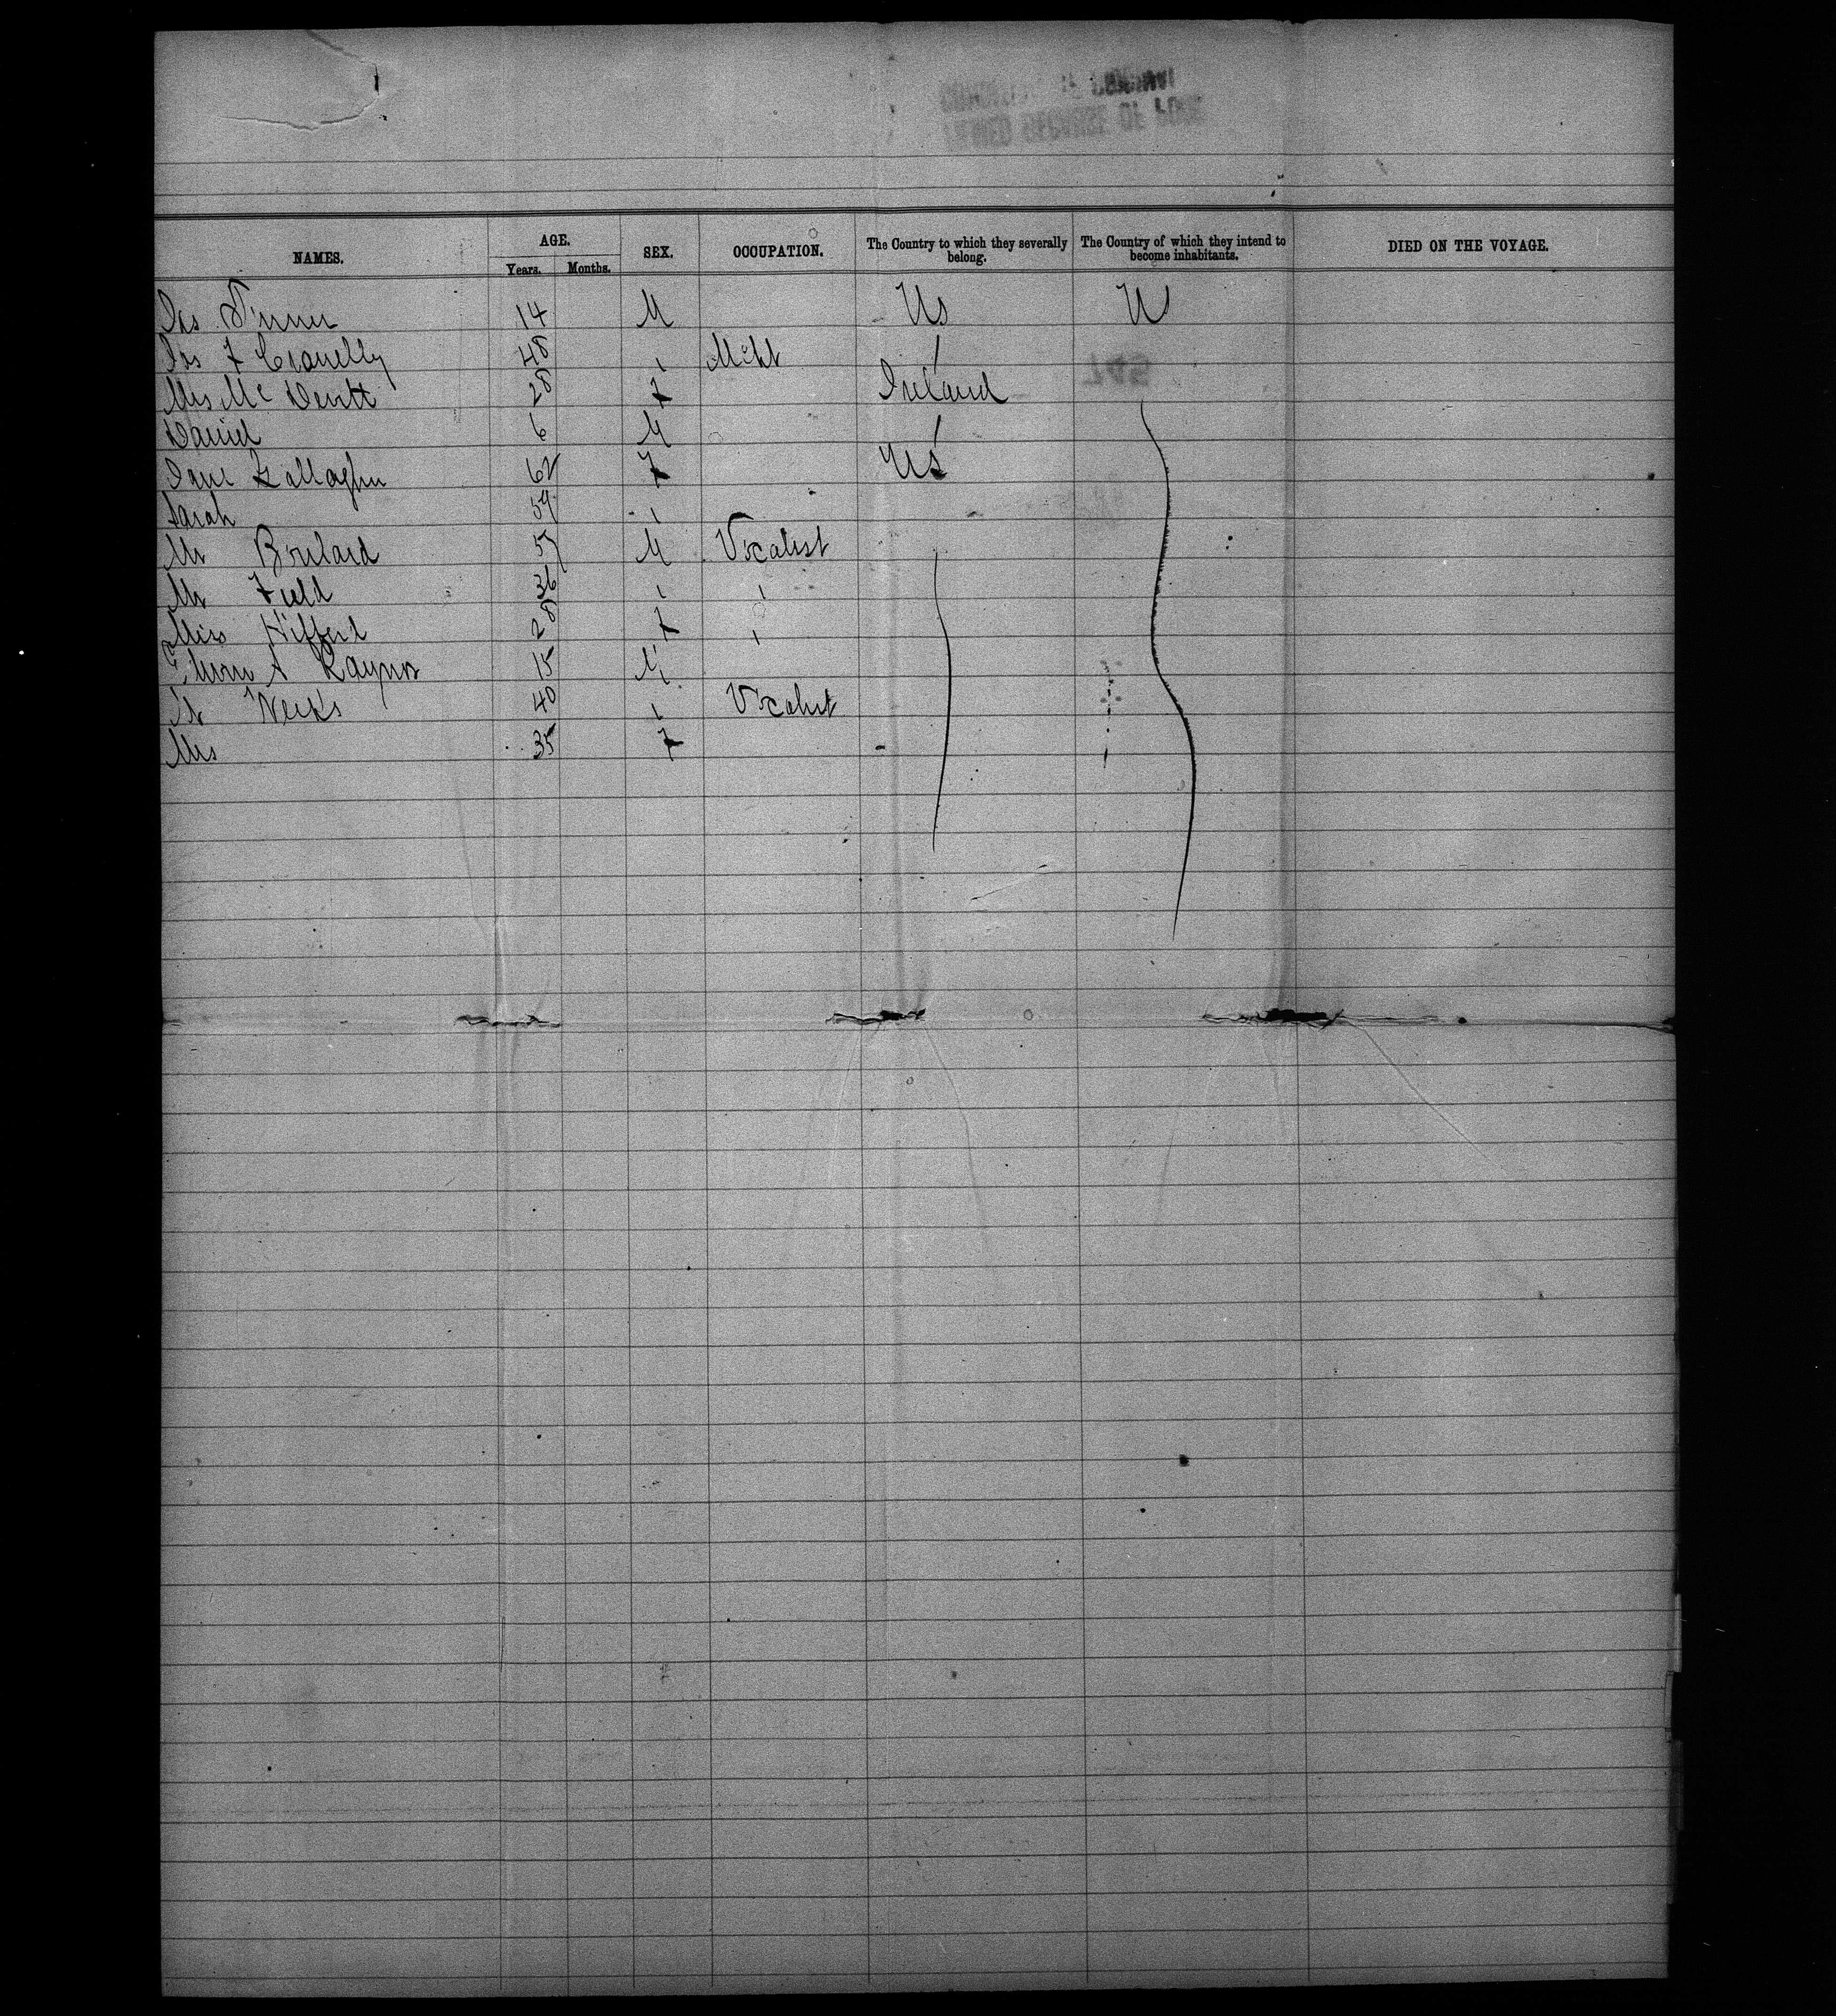 NAMES. AGE. Years. Months. SEX. OCCUPATION. The Country to which they severally belong. The Country of which they intend to become inhabitants. DIED ON THE VOYAGE.
Jas 14 M Us U
Jas F 48 ı /
Mrs Mc Devitt 28 F Ireland
David 6 M /
Jane Gallagher 62 F US
Sarah 59 ı
Mr 57 M Vocalist
Mr Field 36 ı ı
Miss 28 F ı
A Raynor 15 M
40 ı Vocalist
Mrs 35 F